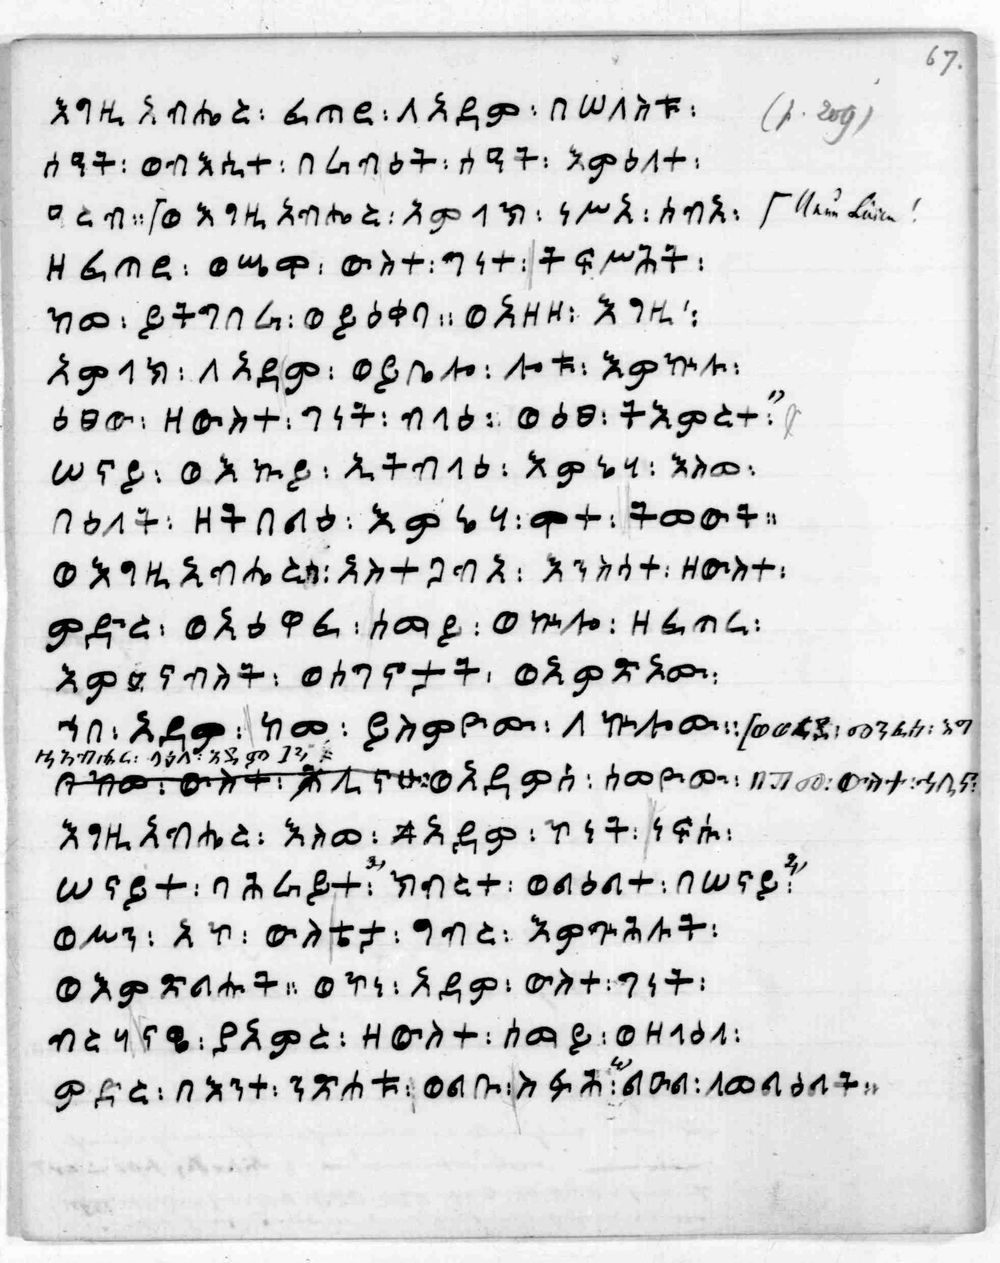 67.
እግዚአብሔር፡ ፈጠረ፡ ለአዳም፡ በሠለስቱ፡ (p. 209)
ሰዓት፡ ወብእሲተ፡ በራብዕት፡ ሰዓት፡ እምዕለተ፡
ዓርብ። ወእግዚአብሔር፡ አምላክ፡ ነሥአ፡ ሰብአ፡
ዘፈጠረ፡ ወሤሞ፡ ውስተ፡ ገነተ፡ ትፍሥሕት፡
ከመ፡ ይትገበራ፡ ወይዕቀባ። ወአዘዘ፡ እግዚ'፡
አምላክ፡ ለአዳም፡ ወይቤሎ፡ ሎቱ፡ እምኵሉ፡
ዕፀው፡ ዘውስተ፡ ገነት፡ ብላዕ፡ ወዕፀ፡ ትእምርተ፡
ሠናይ፡ ወእኩይ፡ ኢትብላዕ፡ እምኔሃ፡ እስመ፡
በዕለት፡ ዘትበልዕ፡ እምኔሃ፡ ሞተ፡ ትመውት።
ወእግዚአብሔርሰ፡ አስተጋብአ፡ እንስሳተ፡ ዘውስተ፡
ምድር፡ ወአዕዋፈ፡ ሰማይ፡ ወኵሎ፡ ዘፈጠረ፡
እምዐናብስት፡ ወሰገኖታት፡ ወአምጽአሙ፡
ኀበ፡ አዳም፡ ከመ፡ ይስምዮሙ፡ ለኵሎሙ።
በከመ፡ ውስተ፡ ሕሊናሁ፡ ወአዳምሰ፡ ሰመዮሙ፡ በጾመ፡ ውስተ፡ ኅሊና
እግዚአብሔር፡ እስመ፡ አዳም፡ ኮነት፡ ነፍሱ፡
ሠናይተ፡ በሕራይተ፡ ክብርተ፡ ወልዕልተ፡ በሠናይ፡
ወሥን፡ አኮ፡ ውስቴታ፡ ግብር፡ እምጕሕሉት፡
ወእምጽልሑት። ወኮነ፡ አዳም፡ ውስተ፡ ገነት፡
ብርሃናዌ፡ ያአምር፡ ዘውስተ፡ ሰማይ፡ ወዘላዕለ፡
ምድር፡ በእንተ፡ ንጽሐቱ፡ ወልቡ፡ ስፉሕ፡ ልዑል፡ ለመልዕልት።